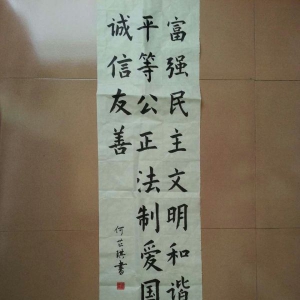 富强民主文明和谐
平等公正法制爱国
诚信友善
何芷琪书